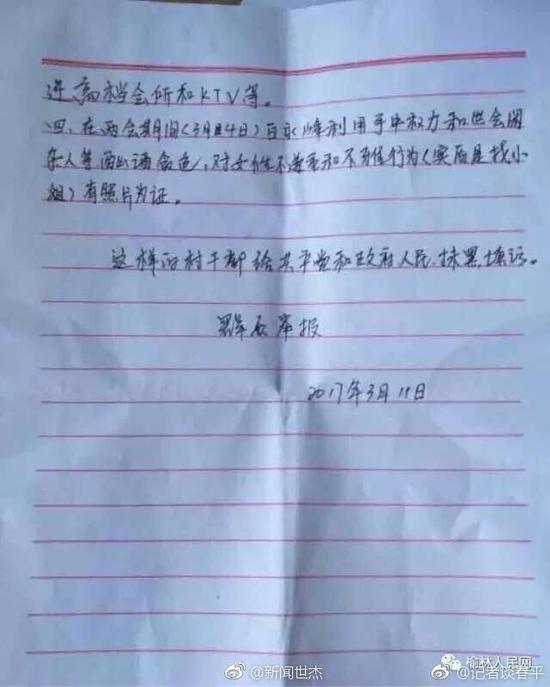 进高档会所和KTV等。
四、在两会期间(3月4日)百永峰利用手中权力和社会闲
杂人等酒色,对女性不尊重和不责任行为(实后是找小
姐)有照片为证。
这样的村干部给共产党和政府人民,抹黑,填污。
群众举报
2017年3月11日
榆林人民网
@新闻世杰
@记者谈春平